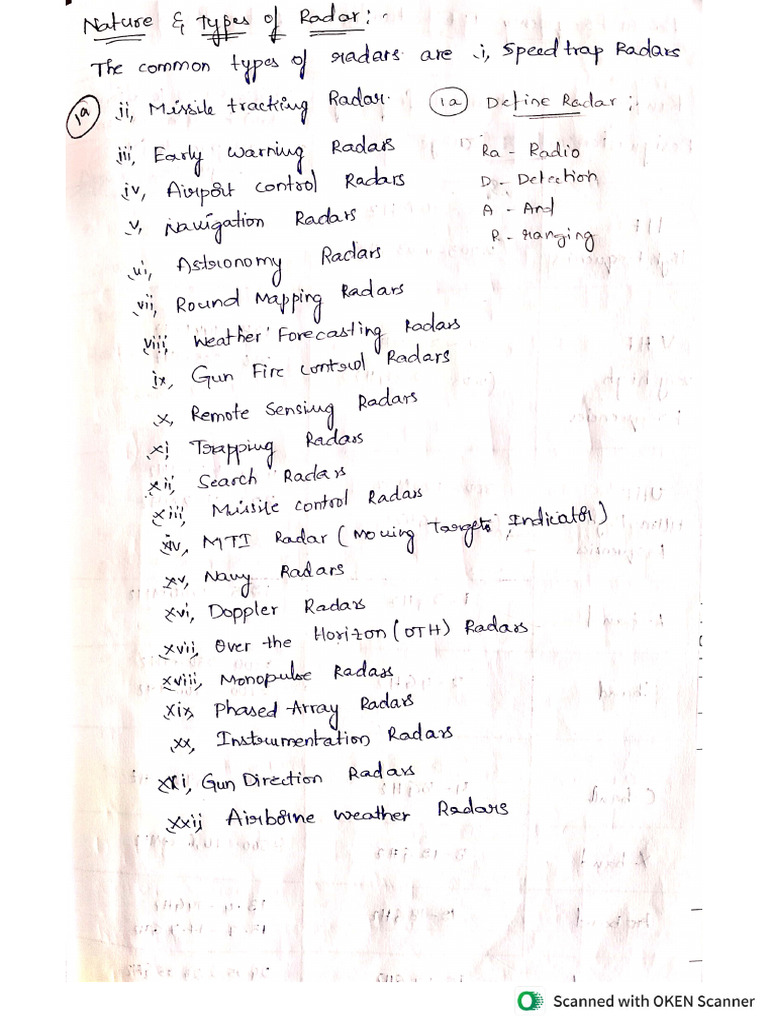 Nature & Types of Radar:
The common types of radars are i, Speed trap Radars
1a ii, Missile tracking Radar. 1a Define Radar:
iii, Early Warning Radars
Ra - Radio
iv, Airport control Radars
D - Detection
v, Navigation Radars
A - And
R - ranging
vi, Astronomy Radars
vii, Round Mapping Radars
viii, Weather Forecasting Radars
ix, Gun Fire control Radars
x, Remote Sensing Radars
xi Trapping Radars
xii, Search Radars
xiii, Missile control Radars
xiv, MTI Radar (Moving Targets Indicator)
xv, Navy Radars
xvi, Doppler Radars
xvii, Over the Horizon (OTH) Radars
xviii, Monopulse Radars
xix, Phased-Array Radars
xx, Instrumentation Radars
xxi, Gun Direction Radars
xxii, Airborne weather Radars
Scanned with OKEN Scanner